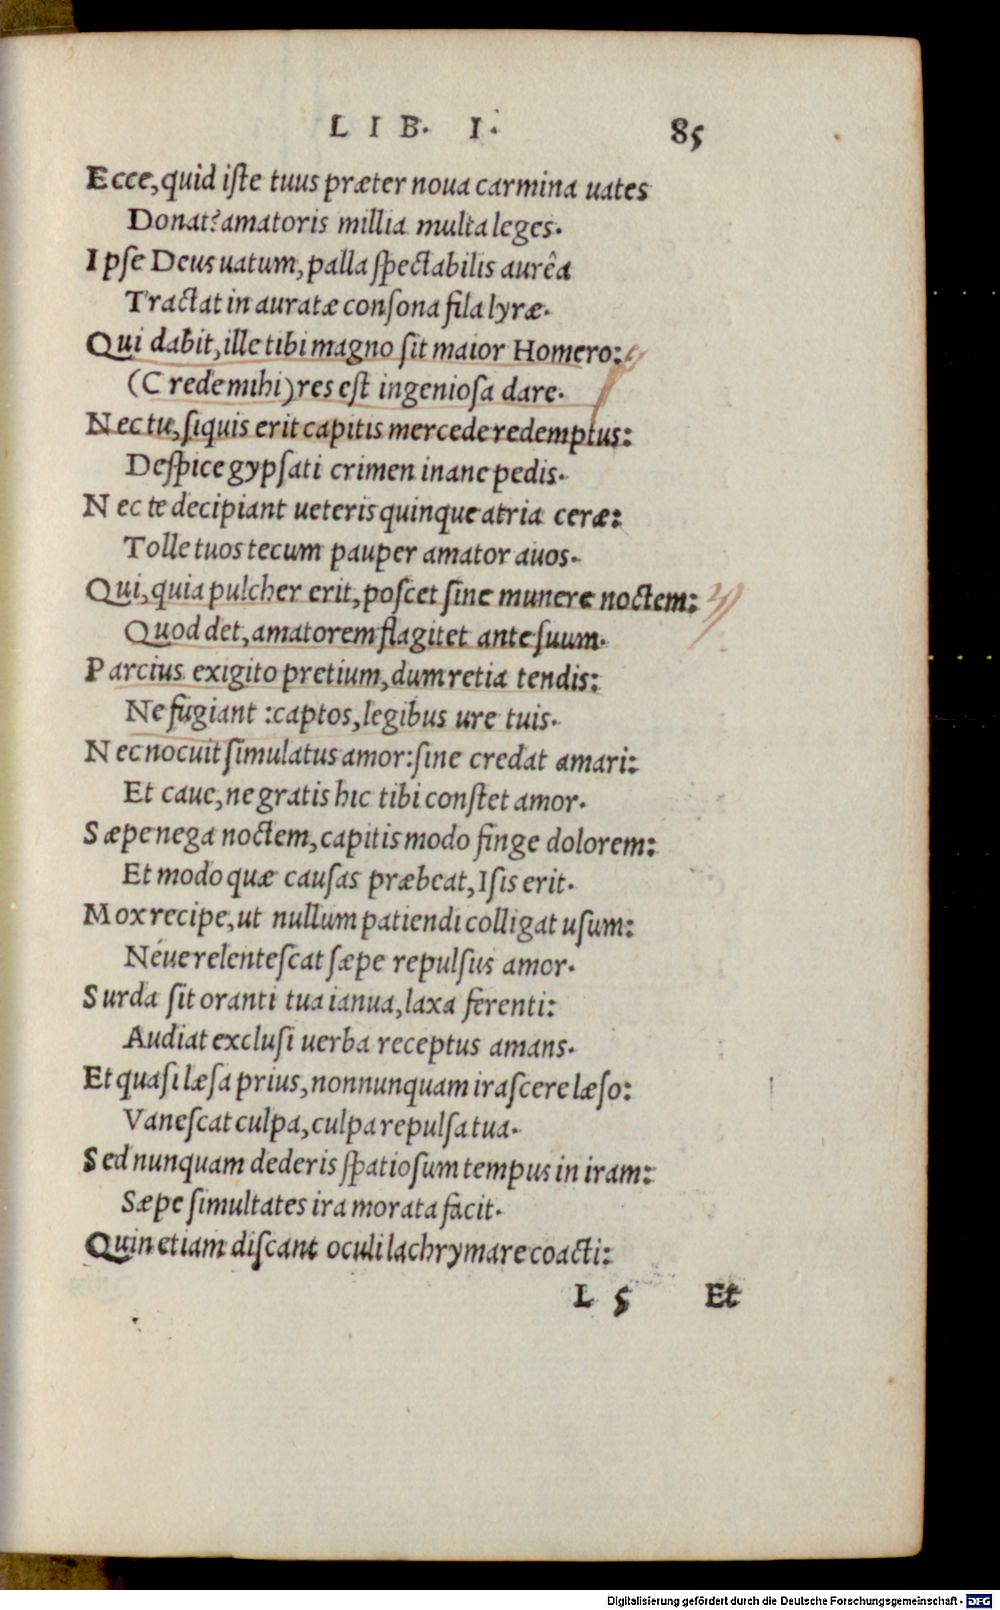 LIB. I. 85
Ecce, quid iste tuus præter noua carmina uates
Donat? amatoris millia multa leges.
Ipse Deus uatum, palla spectabilis aurêa
Tractat in auratæ consona fila lyræ.
Qui dabit, ille tibi magno sit maior Homero:
(Crede mihi) res est ingeniosa dare.
Nec tu, siquis erit capitis mercede redemptus:
Despice gypsati crimen inane pedis.
Nec te decipiant ueteris quinque atria ceræ:
Tolle tuos tecum pauper amator auos.
Qui, quia pulcher erit, poscet sine munere noctem:
Quod det, amatorem flagitet ante suum.
Parcius exigito pretium, dum retia tendis:
Ne fugiant: captos, legibus ure tuis.
Nec nocuit simulatus amor: sine credat amari:
Et caue, ne gratis hic tibi constet amor.
Sæpe nega noctem, capitis modo finge dolorem:
Et modo quæ causas præbeat, Isis erit.
Mox recipe, ut nullum patiendi colligat usum:
Néue relentescat sæpe repulsus amor.
Surda sit oranti tua ianua, laxa ferenti:
Audiat exclusi uerba receptus amans.
Et quasi læsa prius, nonnunquam irascere læso:
Vanescat culpa, culpa repulsa tua.
Sed nunquam dederis spatiosum tempus in iram:
Sæpe simultates ira morata facit.
Quin etiam discant oculi lachrymare coacti:
L 5 Et
Digitalisierung gefördert durch die Deutsche Forschungsgemeinschaft - DFG